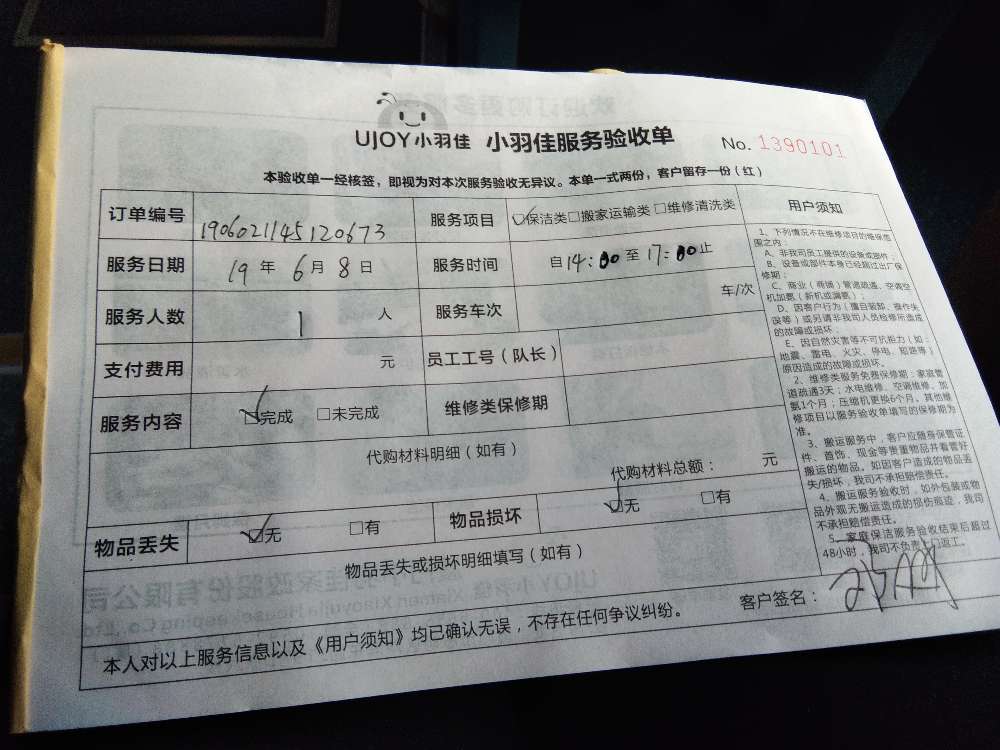 UJOY小羽佳 小羽佳服务验收单 No. 1390101
本验收单一经核签，即视为对本次服务验收无异议。本单一式两份，客户留存一份（红）
订单编号 1906021145120673 服务项目 ☑保洁类□搬家运输类□维修清洗类
服务日期 19 年 6 月 8 日 服务时间 自14:00至17:00止
服务人数 1 人 服务车次 车/次
支付费用 元 员工工号（队长）
服务内容 ☑完成 □未完成 维修类保修期
代购材料明细（如有）
代购材料总额： 元
物品丢失 ☑无 □有 物品损坏 ☑无 □有
物品丢失或损坏明细填写（如有）
本人对以上服务信息以及《用户须知》均已确认无误，不存在任何争议纠纷。 客户签名：
用户须知
1、下列情况不在维修项目的维保范
围之内：
A、非我司员工提供的设备或部件；
B、设备或部件本身已经超过出厂保
修期；
C、商业（商铺）管道疏通、空调空
机加氨（新机或漏氨）；
D、因客户行为（擅自装卸、操作失
误等）或另请非我司人员检修所造成
的故障或损坏；
E、因自然灾害等不可抗拒力（如：
地震、雷电、火灾、停电、短路等）
原因造成的故障或损坏。
2、维修类服务免费保修期：家庭管
道疏通3天；水电维修、空调维修、加
氨1个月；压缩机更换6个月。其他维
修项目以服务验收单填写的保修期为
准。
3、搬运服务中，客户应随身保管证
件、首饰、现金等贵重物品并看管好
搬运的物品。如因客户造成的物品丢
失/损坏，我司不承担赔偿责任。
4、搬运服务验收时，如外包装或物
品外观无搬运造成的损伤痕迹，我司
不承担赔偿责任。
5、家庭保洁服务验收结束后超过
48小时，我司不负责上门返工。